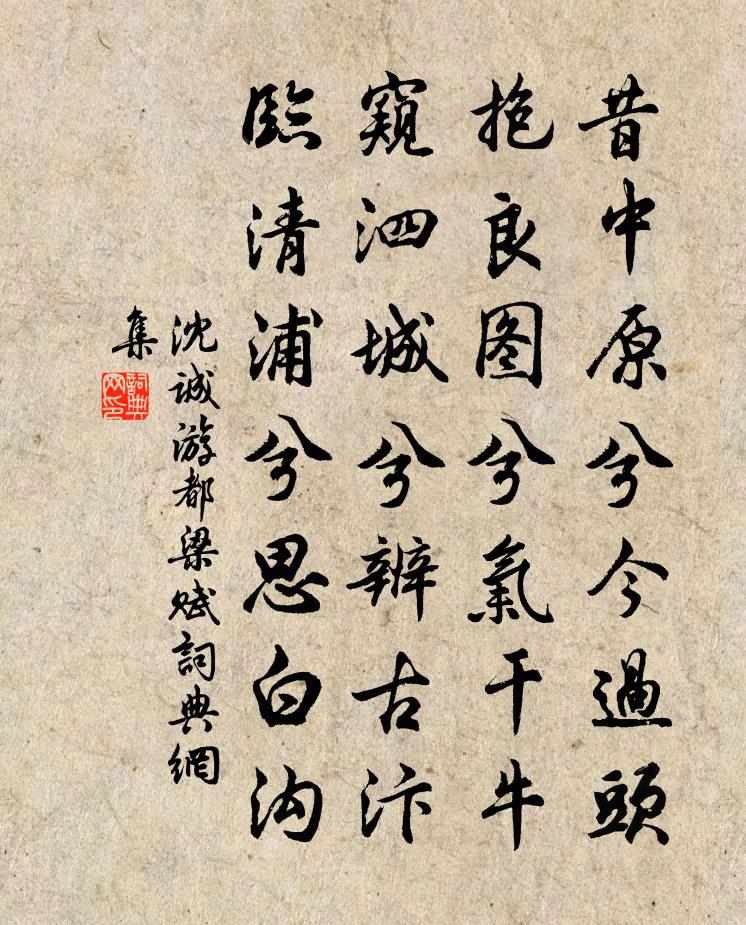 昔中原兮今過頭
抱良图兮氣干牛
窺泗城兮辨古汴
臨清浦兮思白沟
沈诚游都梁赋詞典網
集
詞典
网印